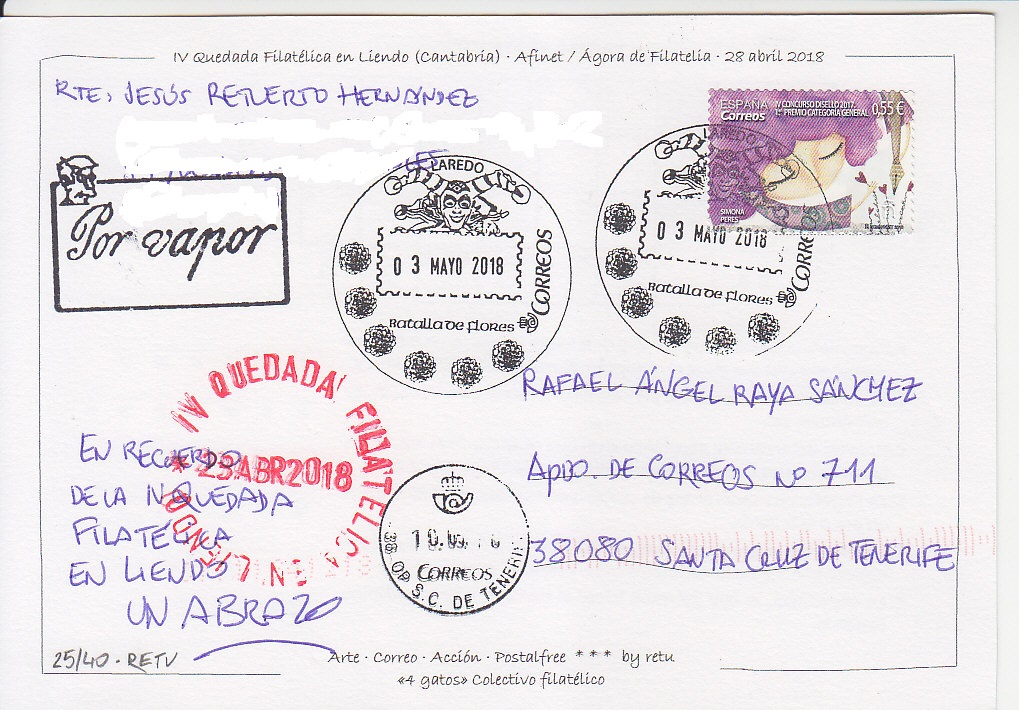 IV Quedada Filatélica en Liendo (Cantabria) · Afinet / Ágora de Filatelia · 28 abril 2018
RTE, JESÚS RETUERTO HERNÁNDEZ
ESPAÑA
Correos
IV CONCURSO DISELLO 2017
1er PREMIO CATEGORÍA GENERAL
0,55 €
SIMONA
PERES
Por vapor
LAREDO
03 MAYO 2018
Batalla de flores
CORREOS
LAREDO
03 MAYO 2018
Batalla de flores
CORREOS
RAFAEL ÁNGEL RAYA SÁNCHEZ
APDO. DE CORREOS Nº 711
38080 SANTA CRUZ DE TENERIFE
IV QUEDADA FILATELICA EN LIENDO
ABR 2018
EN RECUERDO
DE LA IV QUEDADA
FILATÉLICA
EN LIENDO
UN ABRAZO
CORREOS
38 OP S.C. DE TENERIFE
25/40 · RETU
Arte · Correo · Acción · Postalfree * * * by retu
«4 gatos» Colectivo filatélico